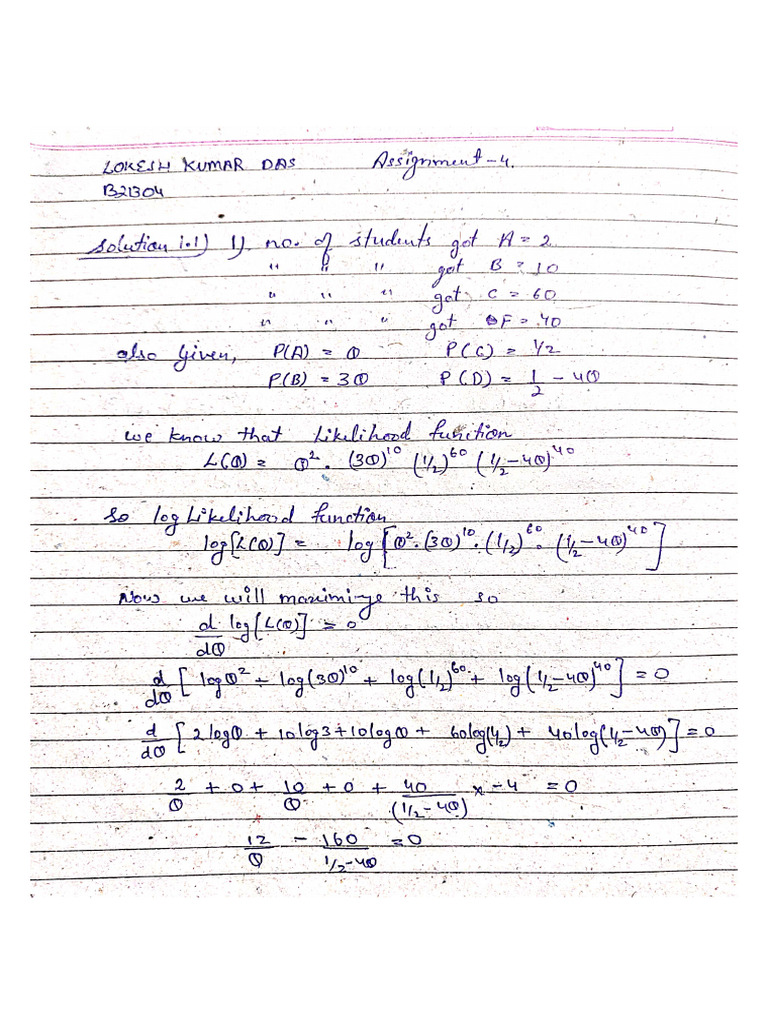 LOKESH KUMAR DAS Assignment-4.
B21304
Solution 1.1) 1). no. of students got A = 2
" " " got B = 10
" " " got C = 60
" " " got F = 40
also given, P(A) = θ P(C) = 1/2
P(B) = 3θ P(D) = 1/2 - 4θ
we know that Likelihood function
L(θ) = θ² . (3θ)¹⁰ (1/2)⁶⁰ (1/2-4θ)⁴⁰
so log Likelihood function
log[L(θ)] = log[θ².(3θ)¹⁰.(1/2)⁶⁰.(1/2-4θ)⁴⁰]
Now we will maximize this so
d/dθ log[L(θ)] = 0
d/dθ [logθ² + log(3θ)¹⁰ + log(1/2)⁶⁰ + log(1/2-4θ)⁴⁰] = 0
d/dθ [2logθ + 10log3 + 10logθ + 60log(1/2) + 40log(1/2-4θ)] = 0
2/θ + 0 + 10/θ + 0 + 40/(1/2-4θ) × -4 = 0
12/θ - 160/1/2-4θ = 0